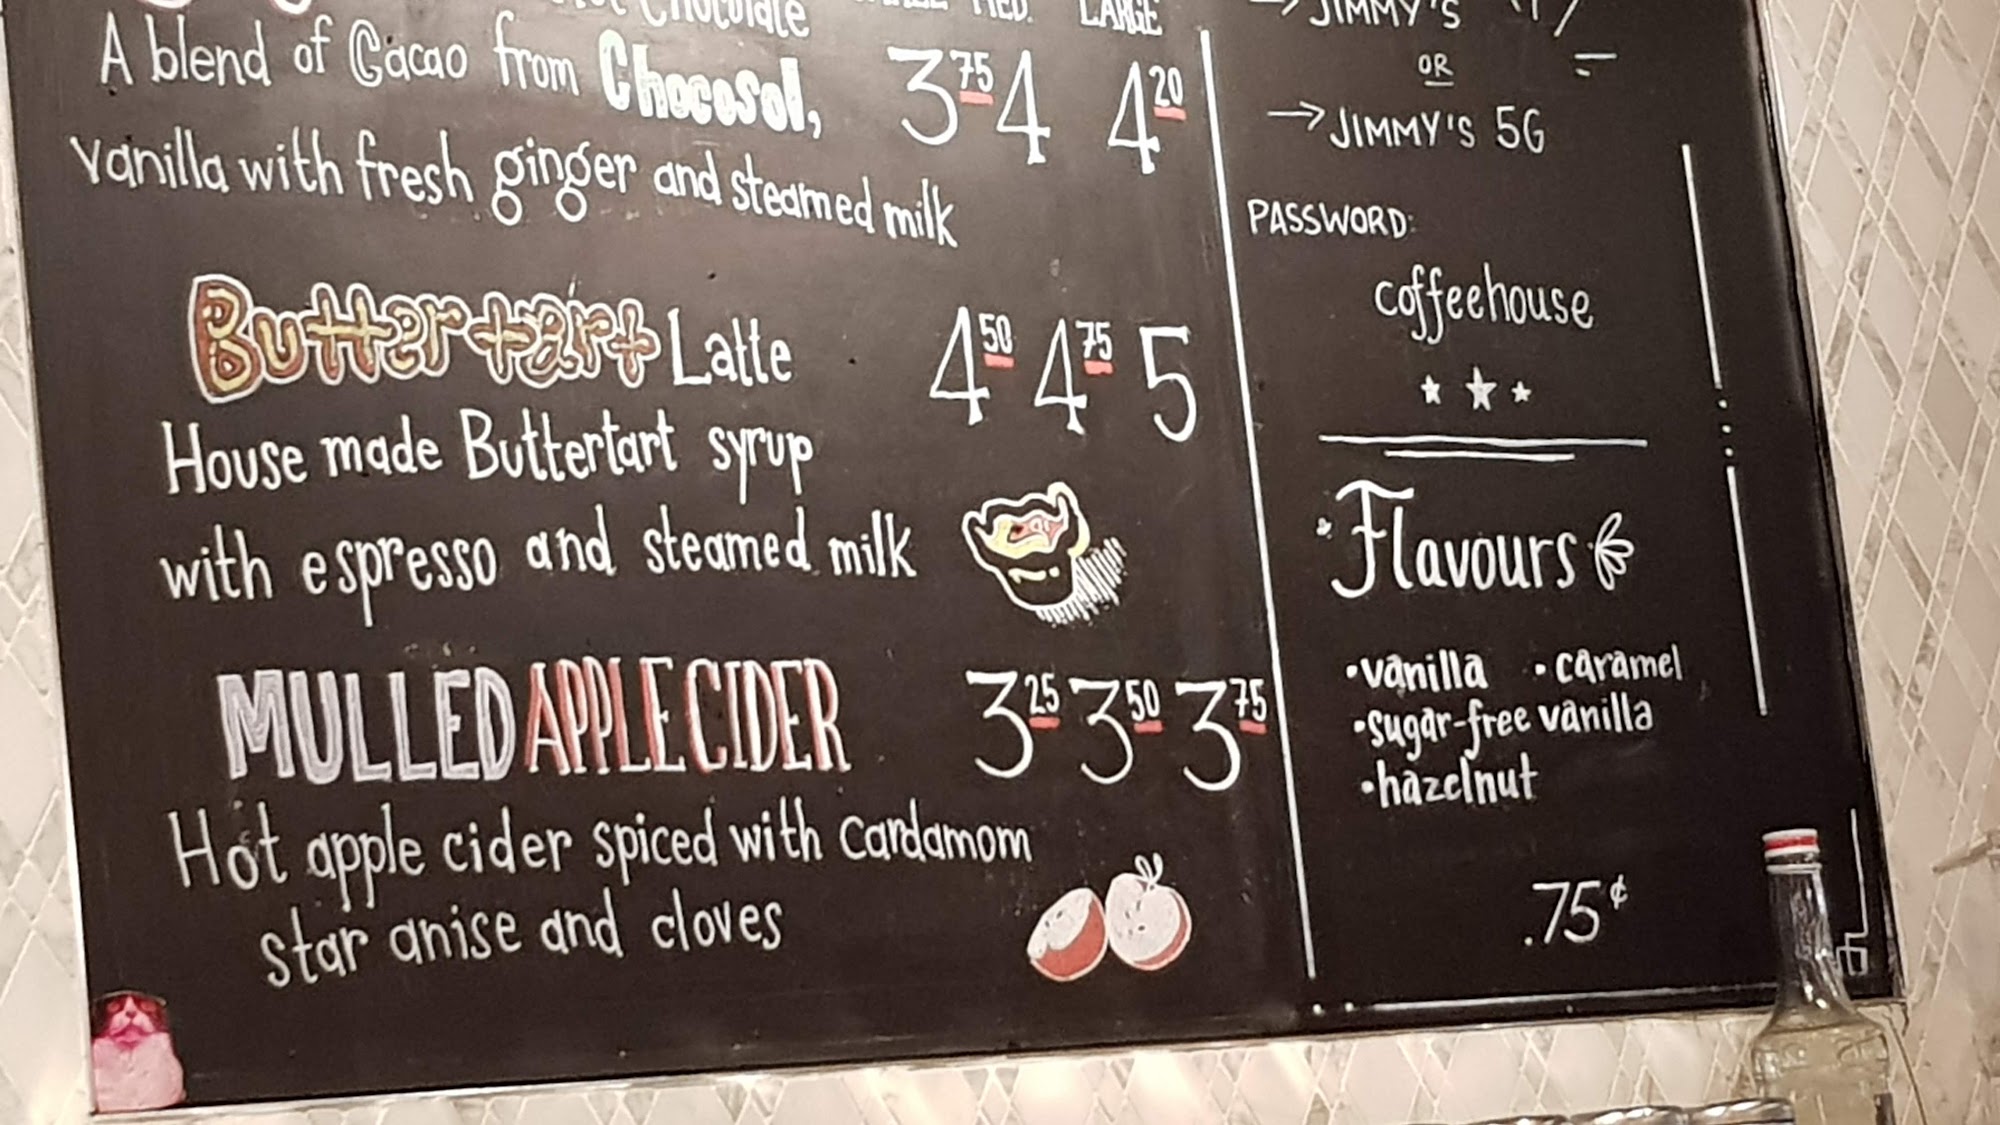 Chocolate MED. LARGE
A blend of Cacao from Chocosol, 3.75 4 4.20
vanilla with fresh ginger and steamed milk
Buttertart Latte 4.50 4.75 5
House made Buttertart syrup
with espresso and steamed milk
MULLED APPLE CIDER 3.25 3.50 3.75
Hot apple cider spiced with cardamom
star anise and cloves
→ JIMMY'S
OR
→ JIMMY'S 5G
PASSWORD:
coffeehouse
Flavours
•vanilla •caramel
•sugar-free vanilla
•hazelnut
.75¢